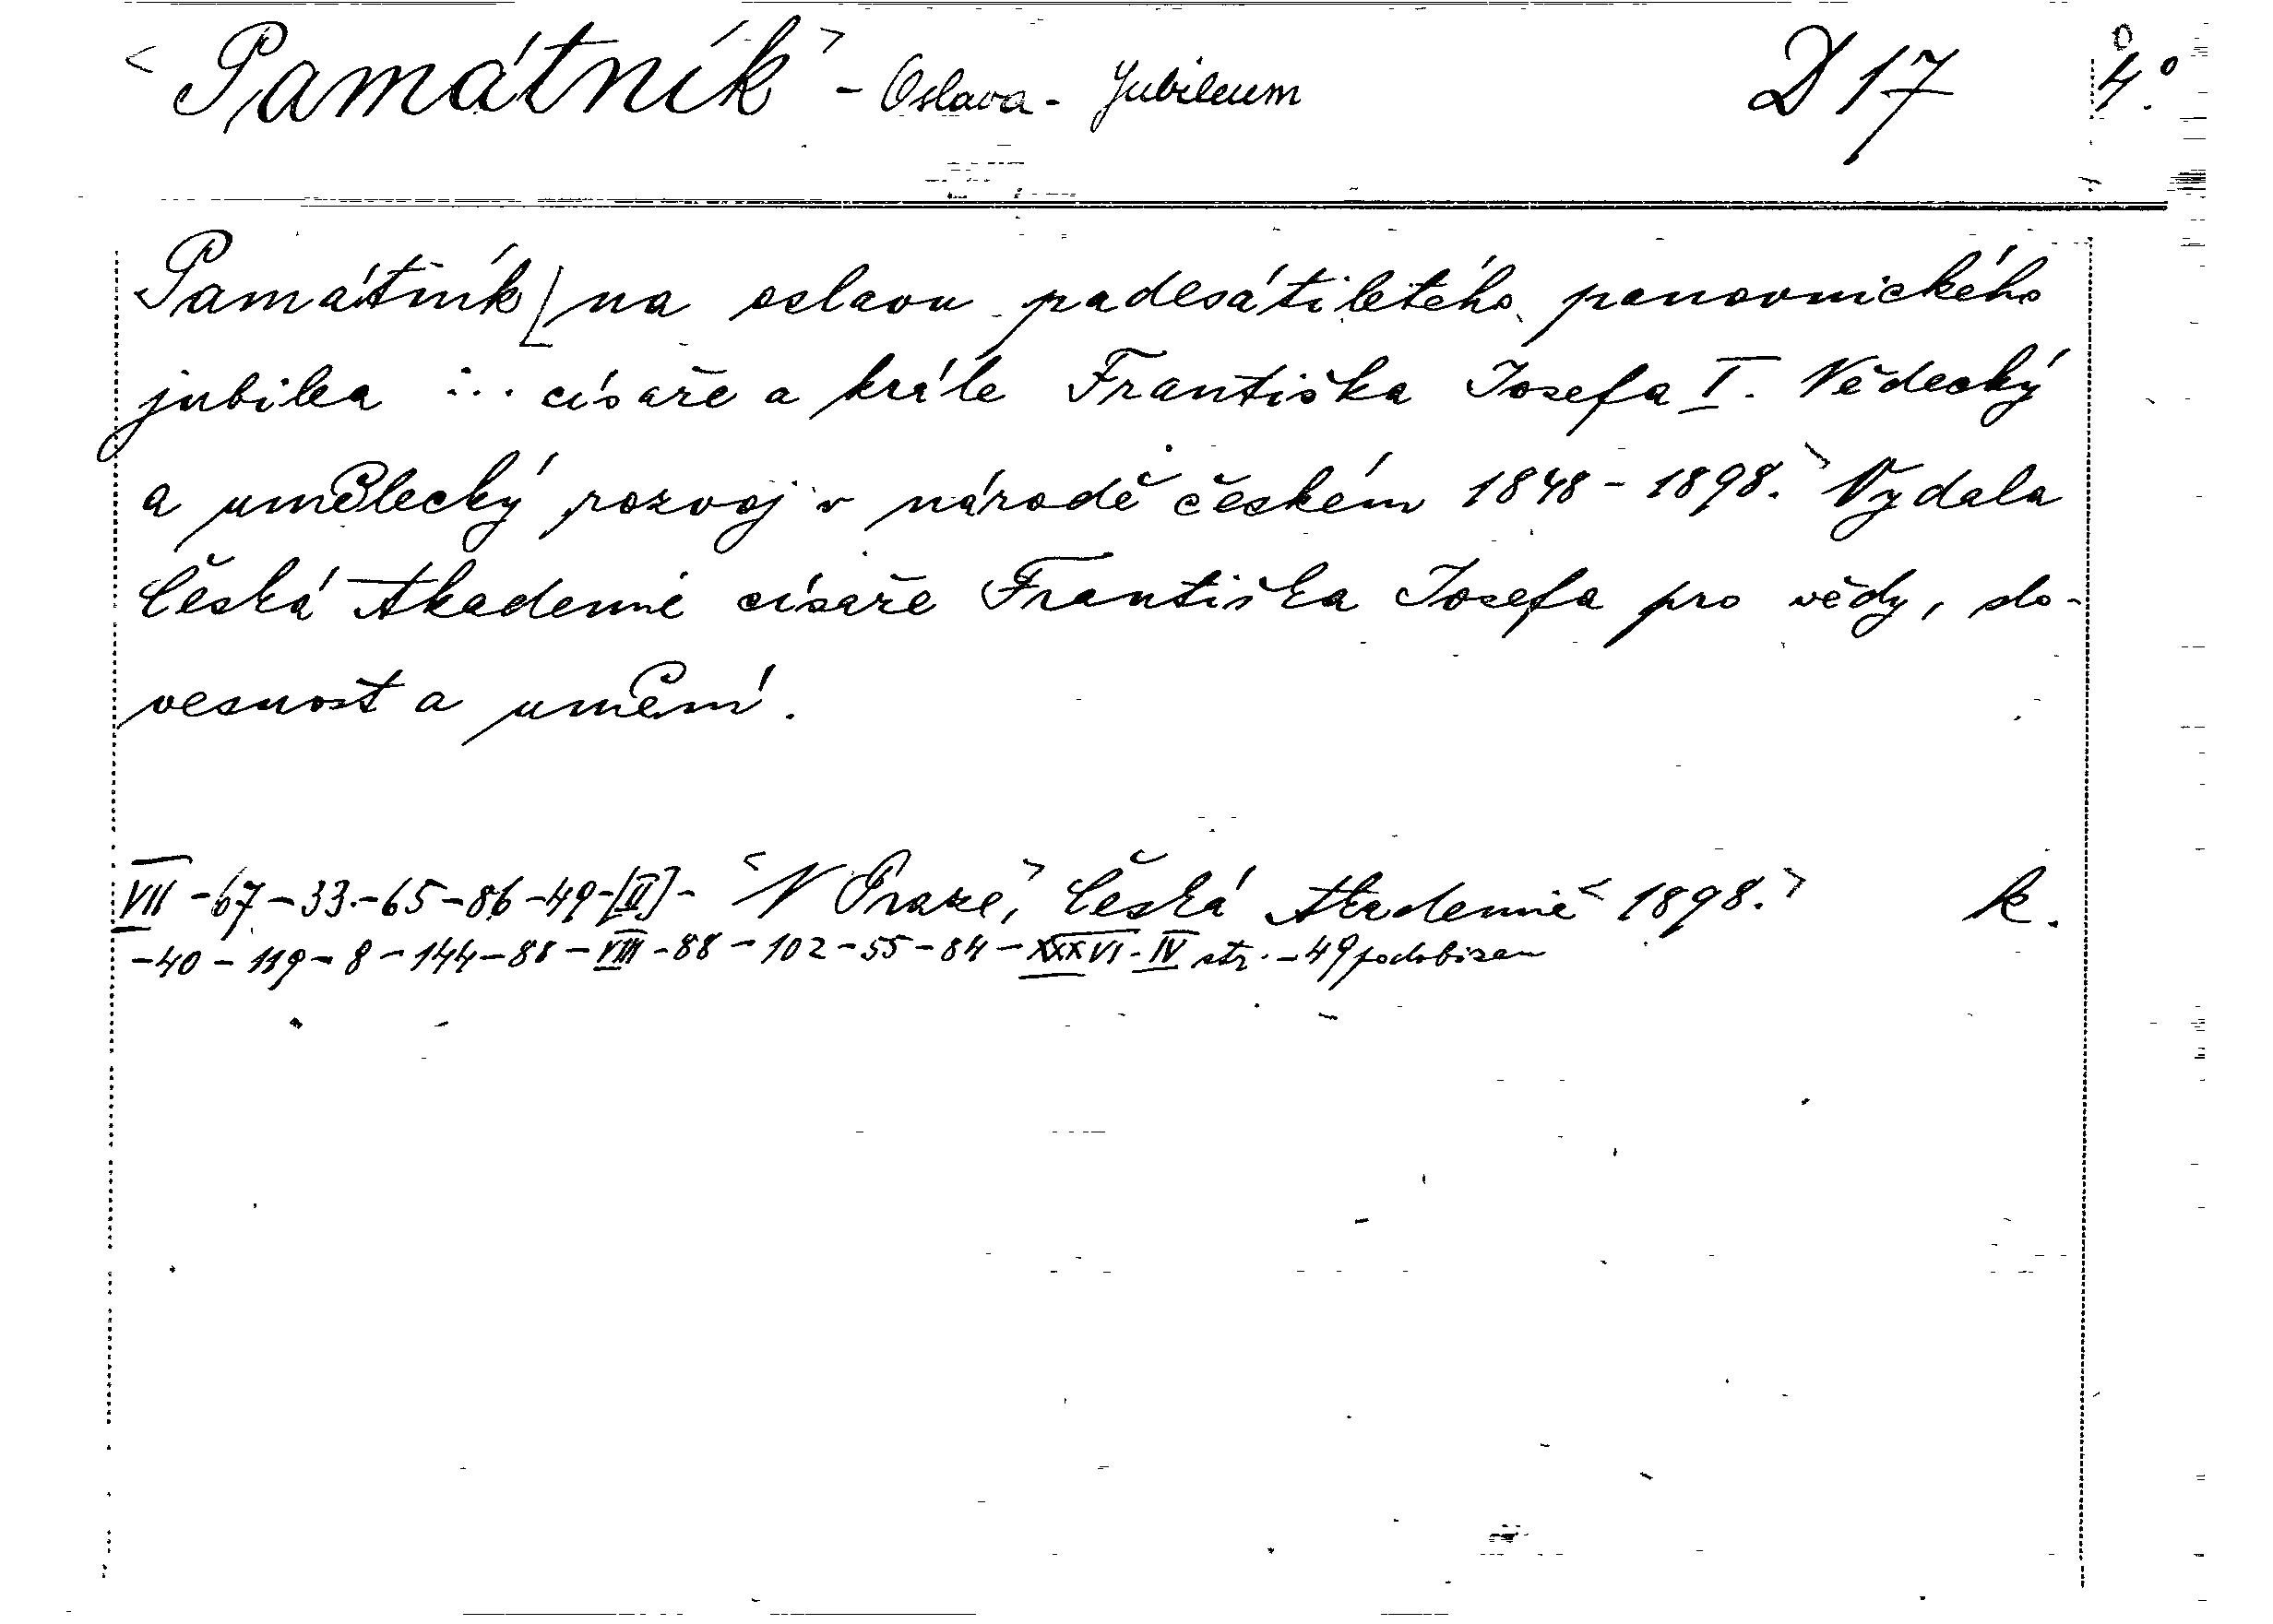 <Památník> - Oslava - Jubileum D 17 4.º
Památník [na oslavu padesátiletého panovnického
jubilea ... císaře a krále Františka Josefa I. Vědecký
a umělecký rozvoj v národě českém 1848-1898.> Vydala
Česká Akademie císaře Františka Josefa pro vědy, slo-
vesnost a umění.
VII-67-33.-65-86-49-[II]- <V Praze,> Česká Akademie <1898.> k.
-40-119-8-144-88-VIII-88-102-55-84-XXXVI-IV str.-49 podobizen